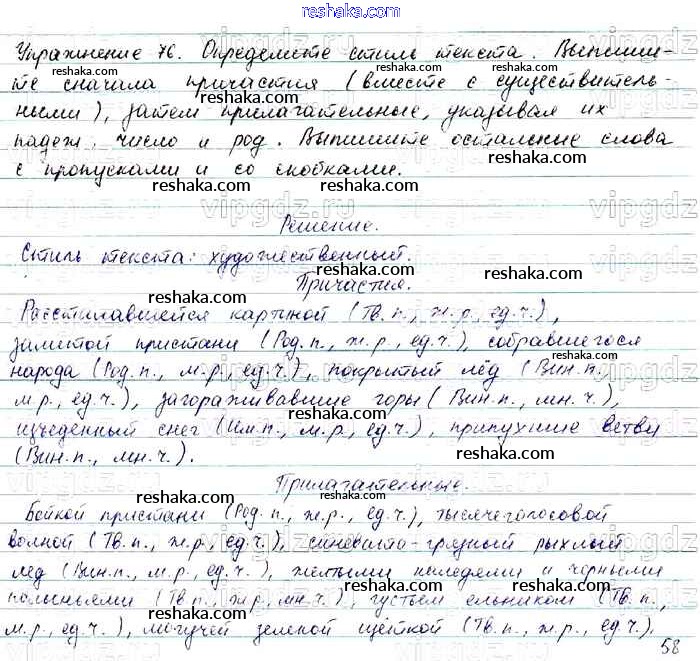 reshaka.com
Упражнение 76. Определите стиль текста. Выпиши-
reshaka.com reshaka.com
те сначала причастия (вместе с существитель-
ными), затем прилагательные, указывая их
reshaka.com reshaka.com
падеж, число и род. Выпишите остальные слова
с пропусками и со скобками.
reshaka.com reshaka.com
vipgdz.ru vipgdz.ru vipgdz.ru
Решение.
Стиль текста: художественный.
reshaka.com
Причастия.
reshaka.com
Расстилавшейся картиной (Тв.п., ж.р., ед.ч.),
reshaka.com
замитой пристани (Род.п., ж.р., ед.ч.), собравшегося
народа (Род.п., м.р., ед.ч.), покрытый лёд (Вин.п.,
reshaka.com
м.р., ед.ч.), загораживавшие горы (Вин.п., мн.ч.),
reshaka.com
изъеденный снег (Им.п., м.р., ед.ч.), припухшие ветви
reshaka.com
(Вин.п., мн.ч.).
Прилагательные.
reshaka.com reshaka.com
Бойкой пристани (Род.п., ж.р., ед.ч.), тысячеголосовой
волной (Тв.п., ж.р., ед.ч.), синевато-грязный рыхлый
reshaka.com reshaka.com
лёд (Вин.п., м.р., ед.ч.), желтыми наледями и черными
полыньями (Тв.п., ж.р., мн.ч.), густым ельником (Тв.п.,
reshaka.com reshaka.com
м.р., ед.ч.), могучей зеленой щёткой (Тв.п., ж.р., ед.ч.).
58